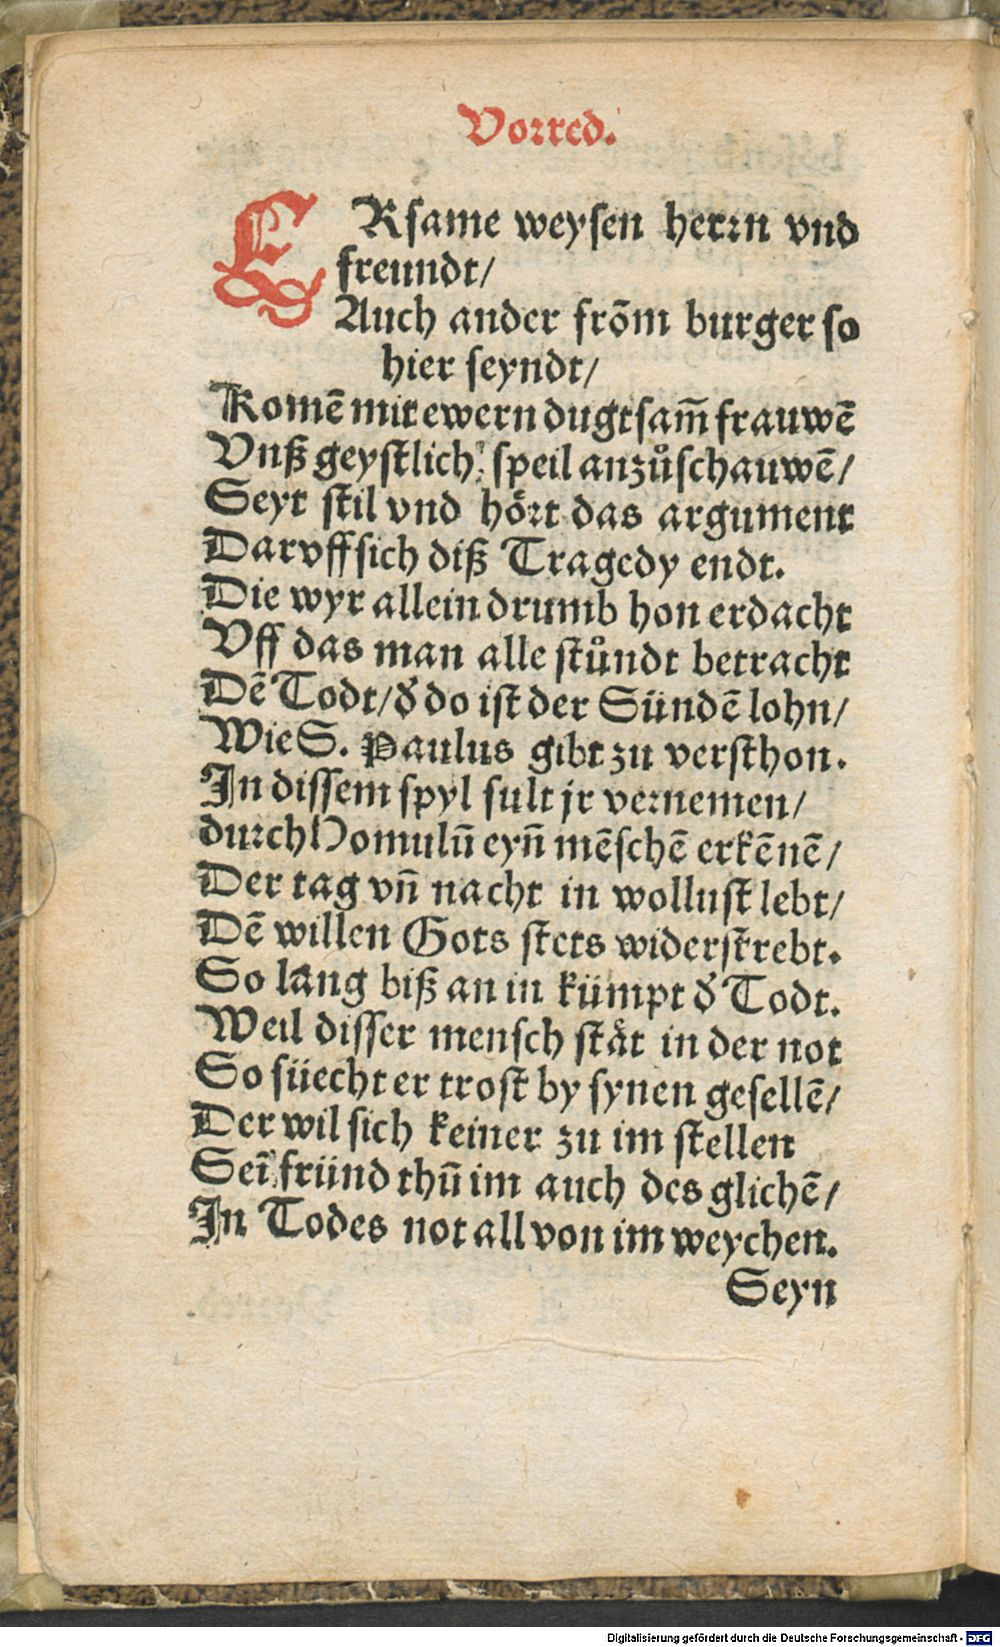 Vorred.
ERsame weysen herrn vnd
freundt/
Auch ander frõm burger so
hier seyndt/
Komẽ mit ewern dugtsam̃ frauwẽ
Vnß geystlich speil anzůschauwẽ/
Seyt stil vnd hört das argument
Daruff sich diß Tragedy endt.
Die wyr allein drumb hon erdacht
Vff das man alle stůndt betracht
Dẽ Todt/ d̃ do ist der Sündẽ lohn/
Wie S. Paulus gibt zu versthon.
In dissem spyl sult jr vernemen/
durch Homulũ eyñ mẽschẽ erkẽnẽ/
Der tag vñ nacht in wollust lebt/
Dẽ willen Gots stets widerstrebt.
So lang biß an in kümpt d̃ Todt.
Weil disser mensch stät in der not
So süecht er trost by synen gesellẽ/
Der wil sich keiner zu im stellen
Sei᷉ fründ thũ im auch des glichẽ/
In Todes not all von im weychen.
Seyn
Digitalisierung gefördert durch die Deutsche Forschungsgemeinschaft - DFG